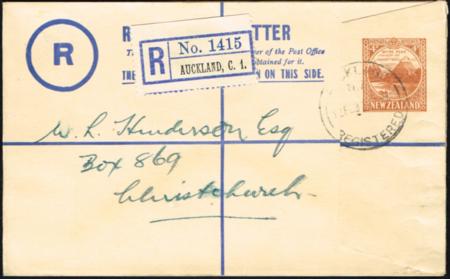 R
R
TTER
T
er of the Post Office
obtained for it.
THE
N ON THIS SIDE.
R No. 1415
AUCKLAND, C. 1.
NEW ZEALAND
REGISTERED
W. L. Henderson Esq
Box 869
Christchurch